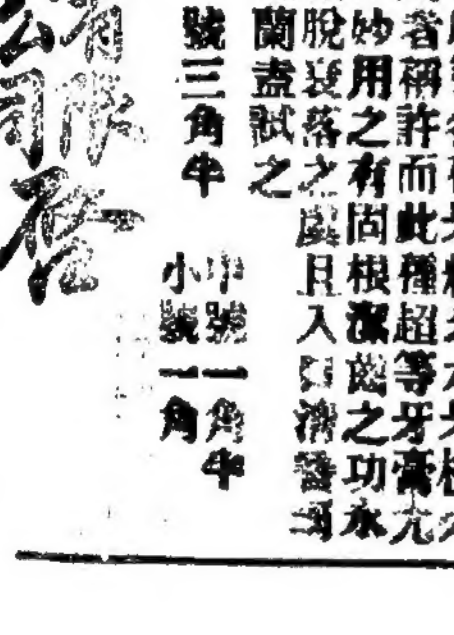 者稱許而此種超等牙膏尤
妙用之有固根潔齒之功永
脫衰落之處且入口清馨蜀
蘭盍試之
號三角牛
中號一角牛
小號一角
有限
公司啓